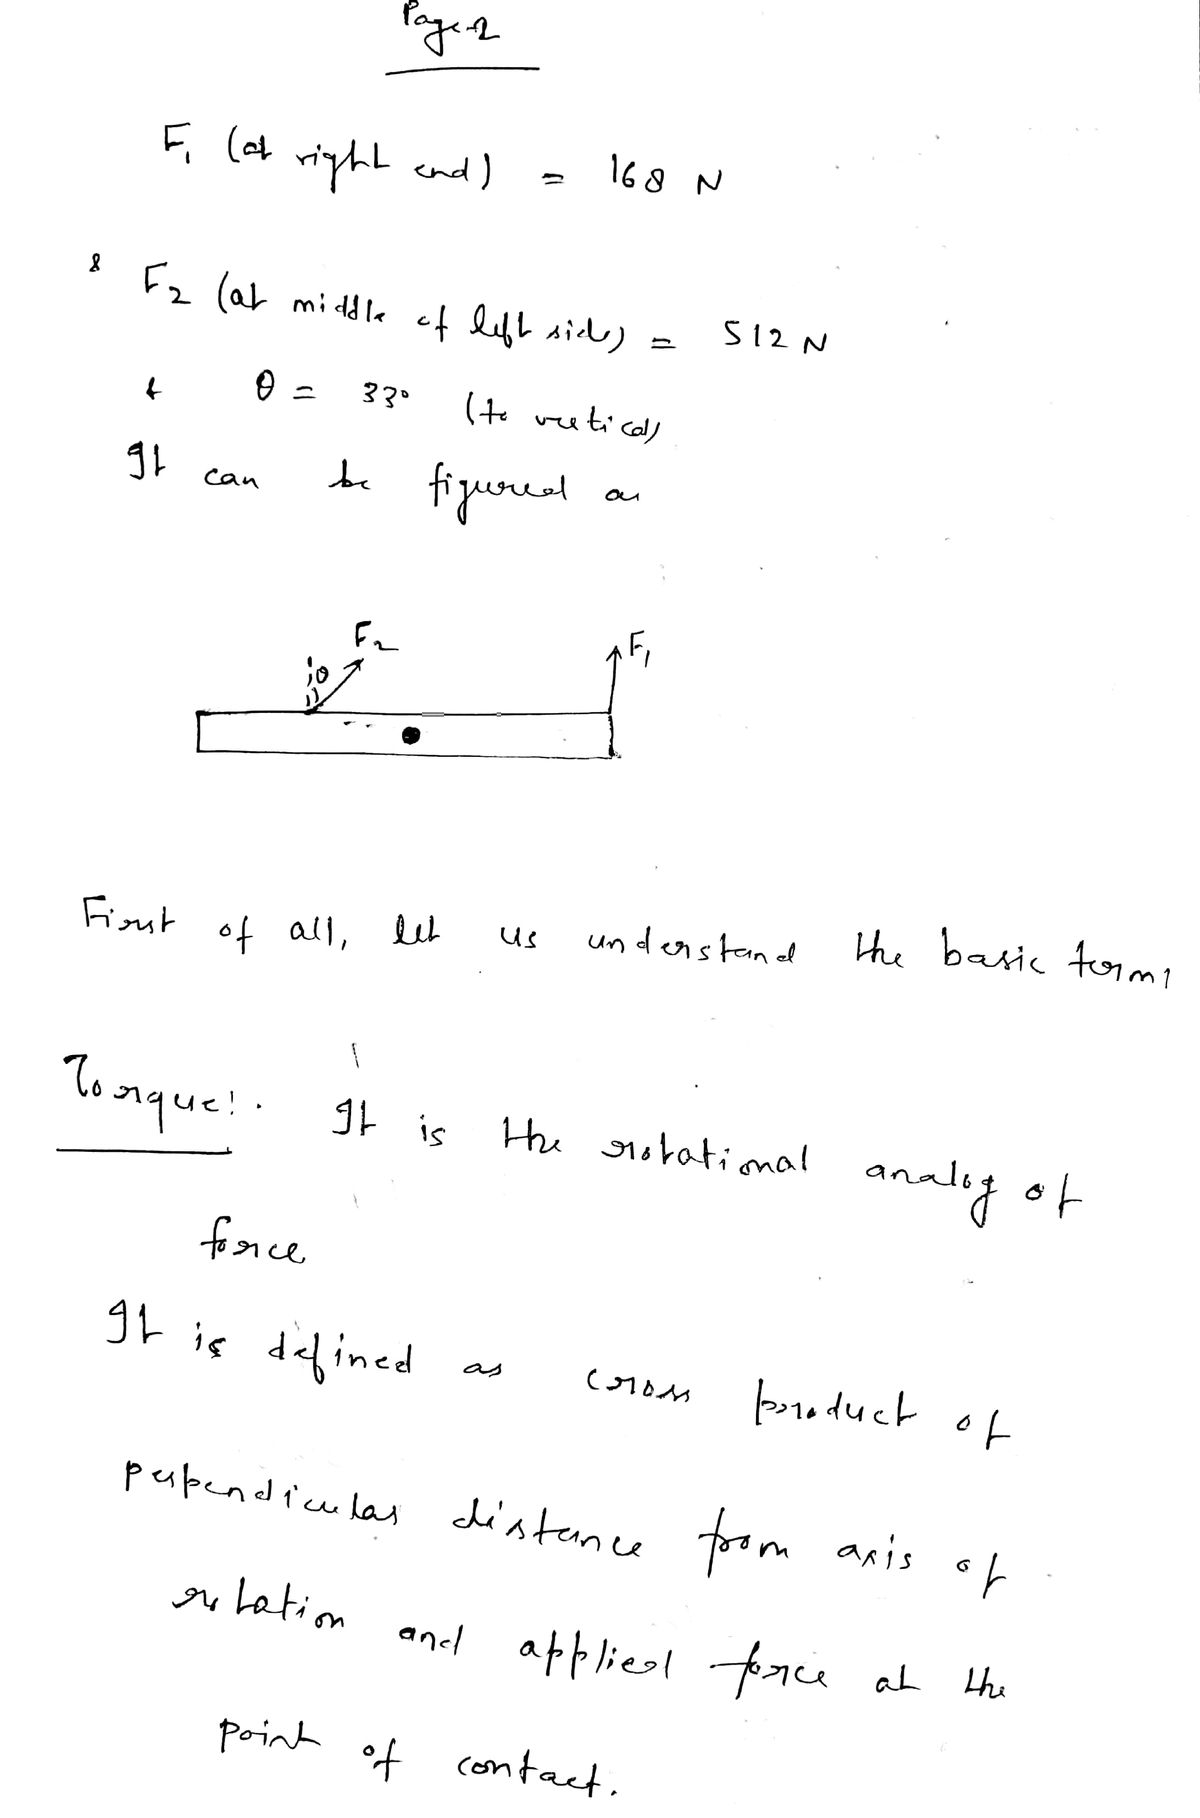 Page-2
F1 (at right end) = 168 N
& F2 (at middle of left side) = 512 N
& θ = 33° (to vertical)
It can be figured as
F2
F1
θ
First of all, let us understand the basic terms
Torque:- It is the rotational analog of
force
It is defined as cross product of
perpendicular distance from axis of
rotation and applied force at the
point of contact.